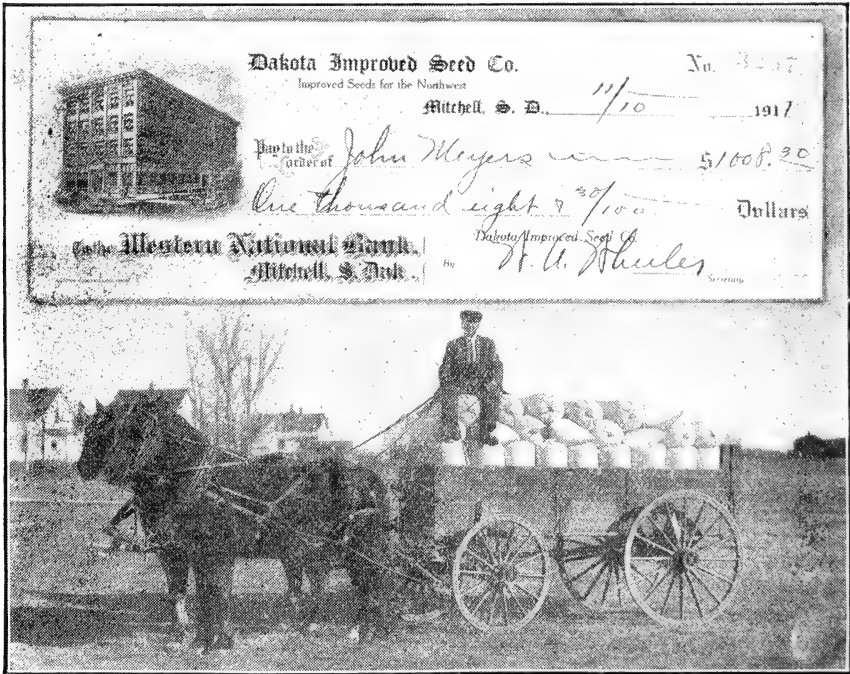 Dakota Improved Seed Co. No.
Improved Seeds for the Northwest
Mitchell, S. D. 11/10 1917
Pay to the order of John Meyers $1008.30
One thousand eight & 30/100 Dollars
To the Western National Bank,
Mitchell, S. Dak.
Dakota Improved Seed Co.
By W. A. Wheeler
Secretary